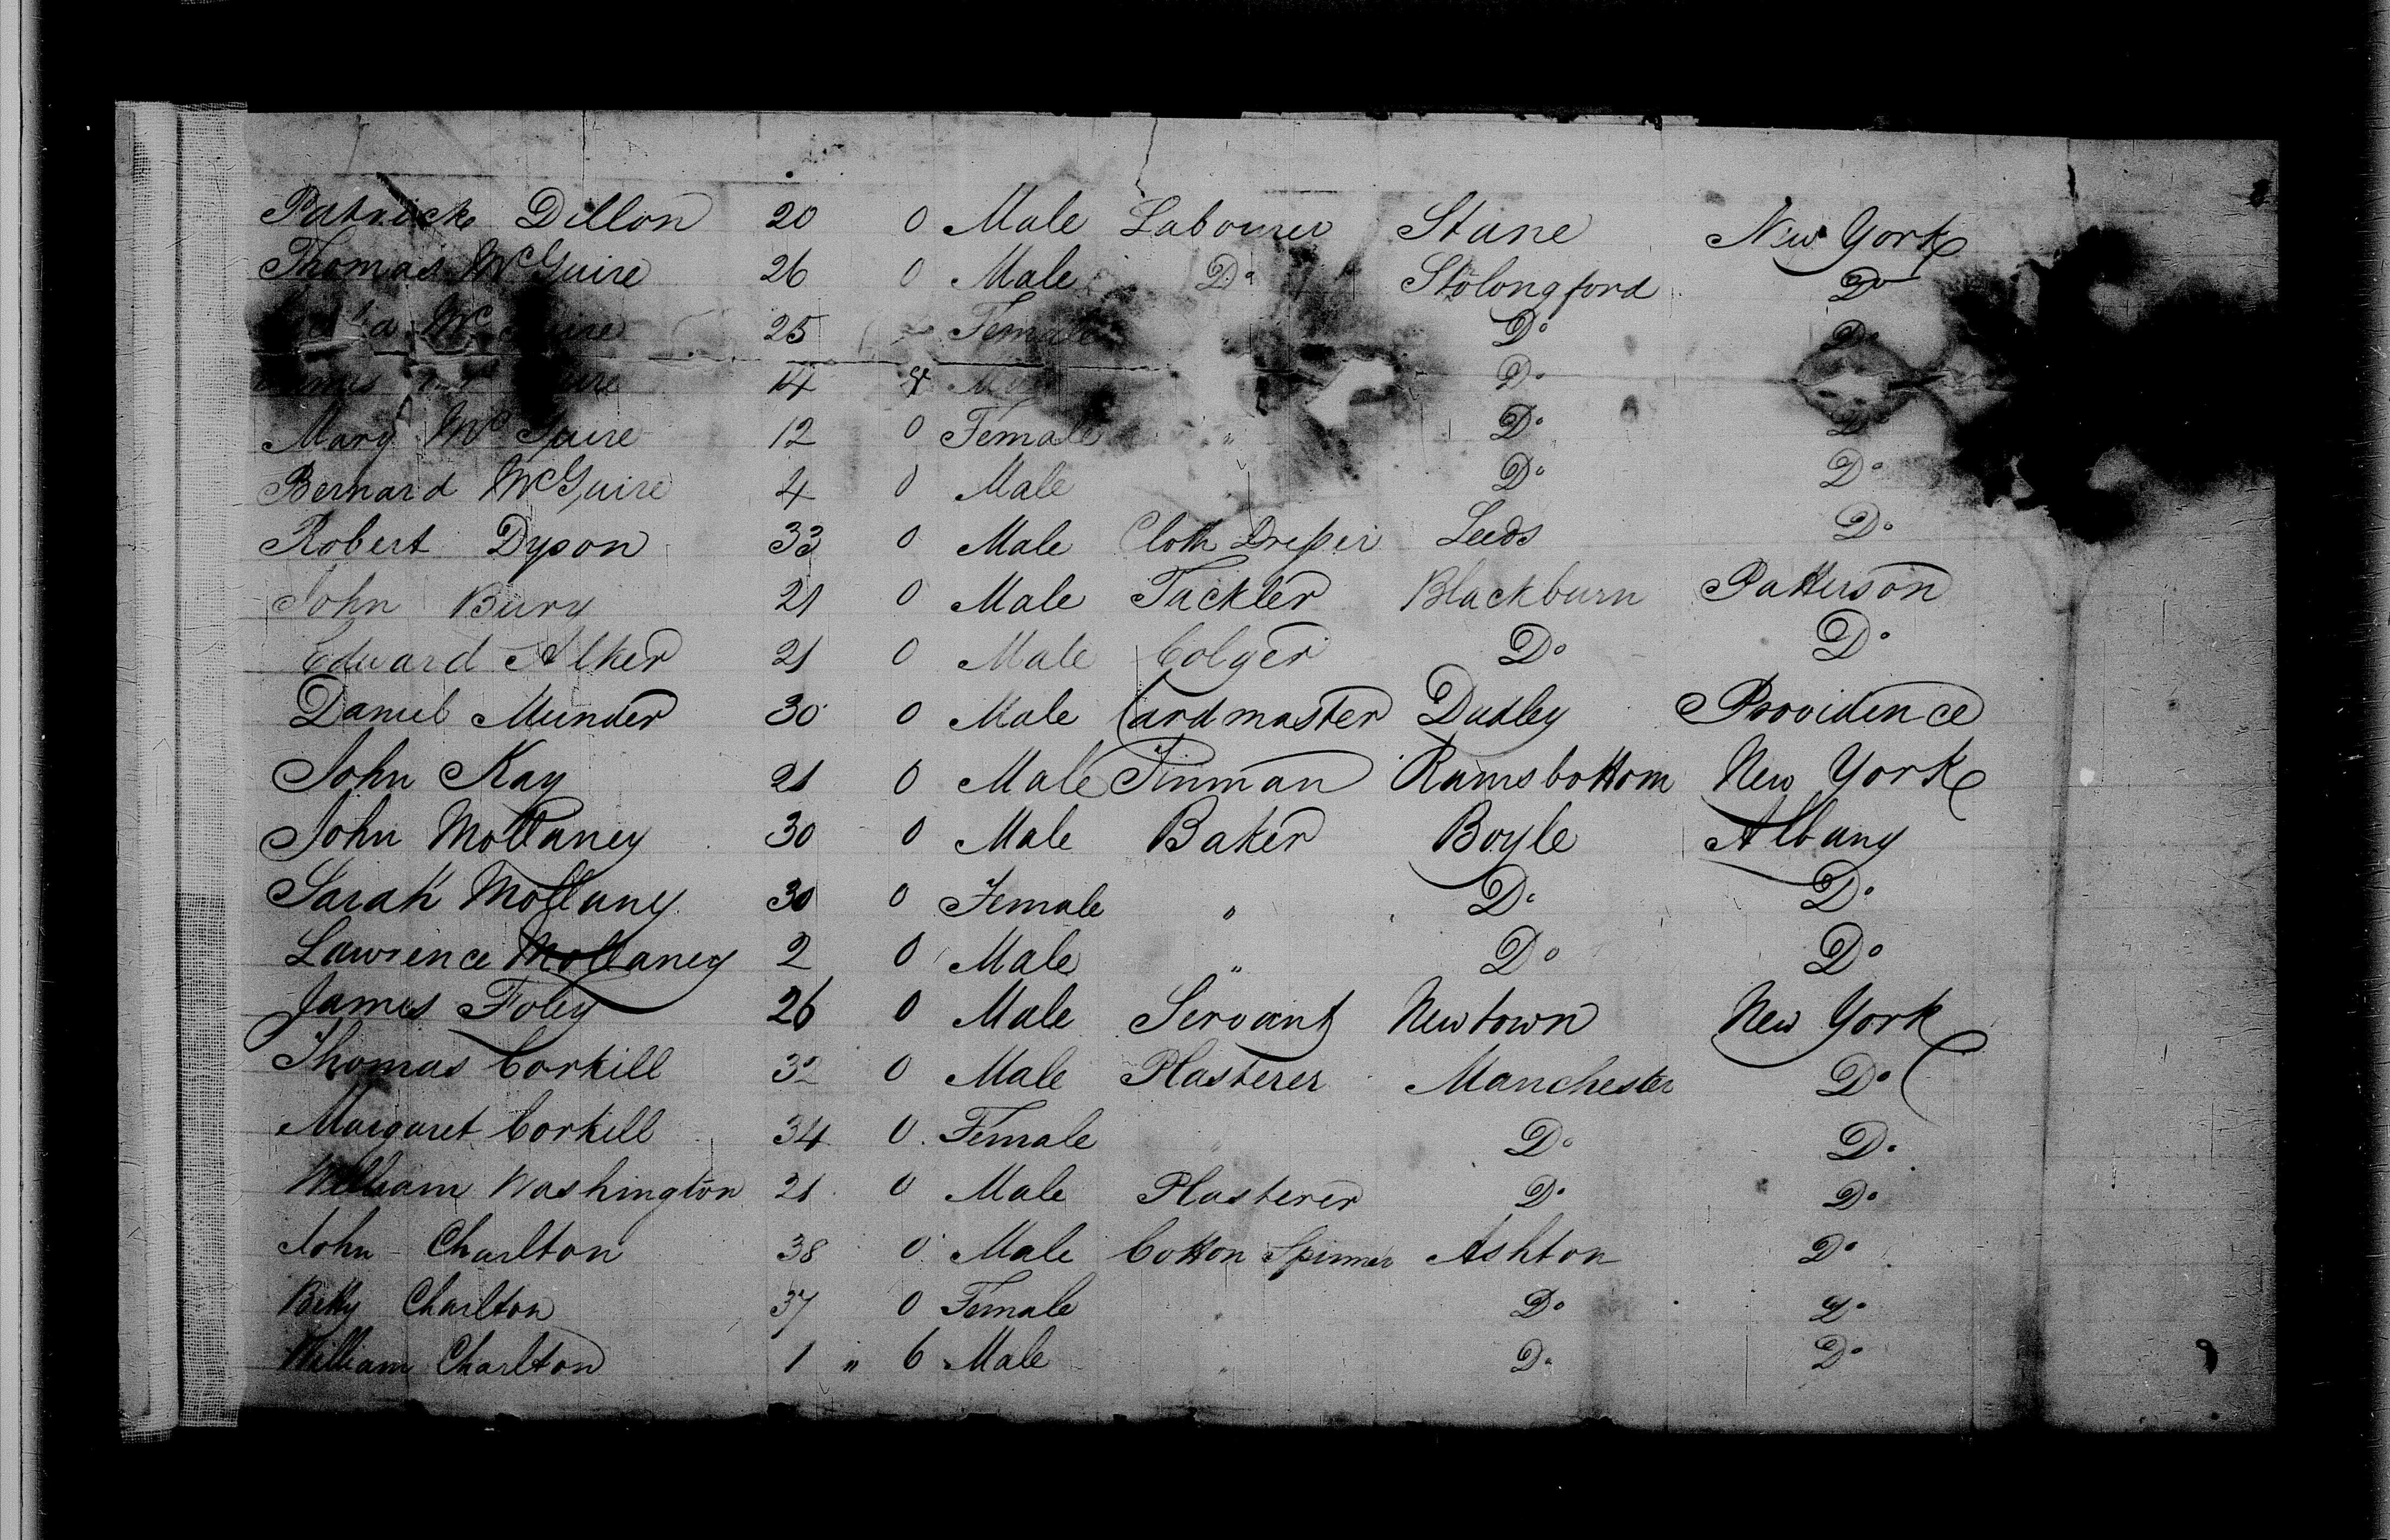 Patrick Dillon 20 0 Male Labourer Stane New York
Thomas McGuire 26 0 Male Do Stolongford Do
McGuire 25 Female Do Do
14 Do
Mary McGuire 12 0 Female " Do Do
Bernard McGuire 4 0 Male Do Do
Robert Dyson 33 0 Male Cloth Dresser Leeds Do
John Bury 21 0 Male Tackler Blackburn Patterson
Edward Alker 21 0 Male Colyer Do Do
Daniel Munder 30 0 Male Cardmaster Dudley Providence
John Kay 21 0 Male Tinman Ramsbottom New York
John Mollaney 30 0 Male Baker Boyle Albany
Sarah Mollany 30 0 Female " Do Do
Lawrence Mollaney 2 0 Male " Do Do
James Foley 26 0 Male Servant Newtown New York
Thomas Corkill 32 0 Male Plasterer Manchester Do
Margaret Corkill 34 0 Female Do Do
William Washington 21 0 Male Plasterer Do Do
John Charlton 38 0 Male Cotton Spinner Ashton Do
Betty Charlton 37 0 Female Do Do
William Charlton 1 " 6 Male " Do Do